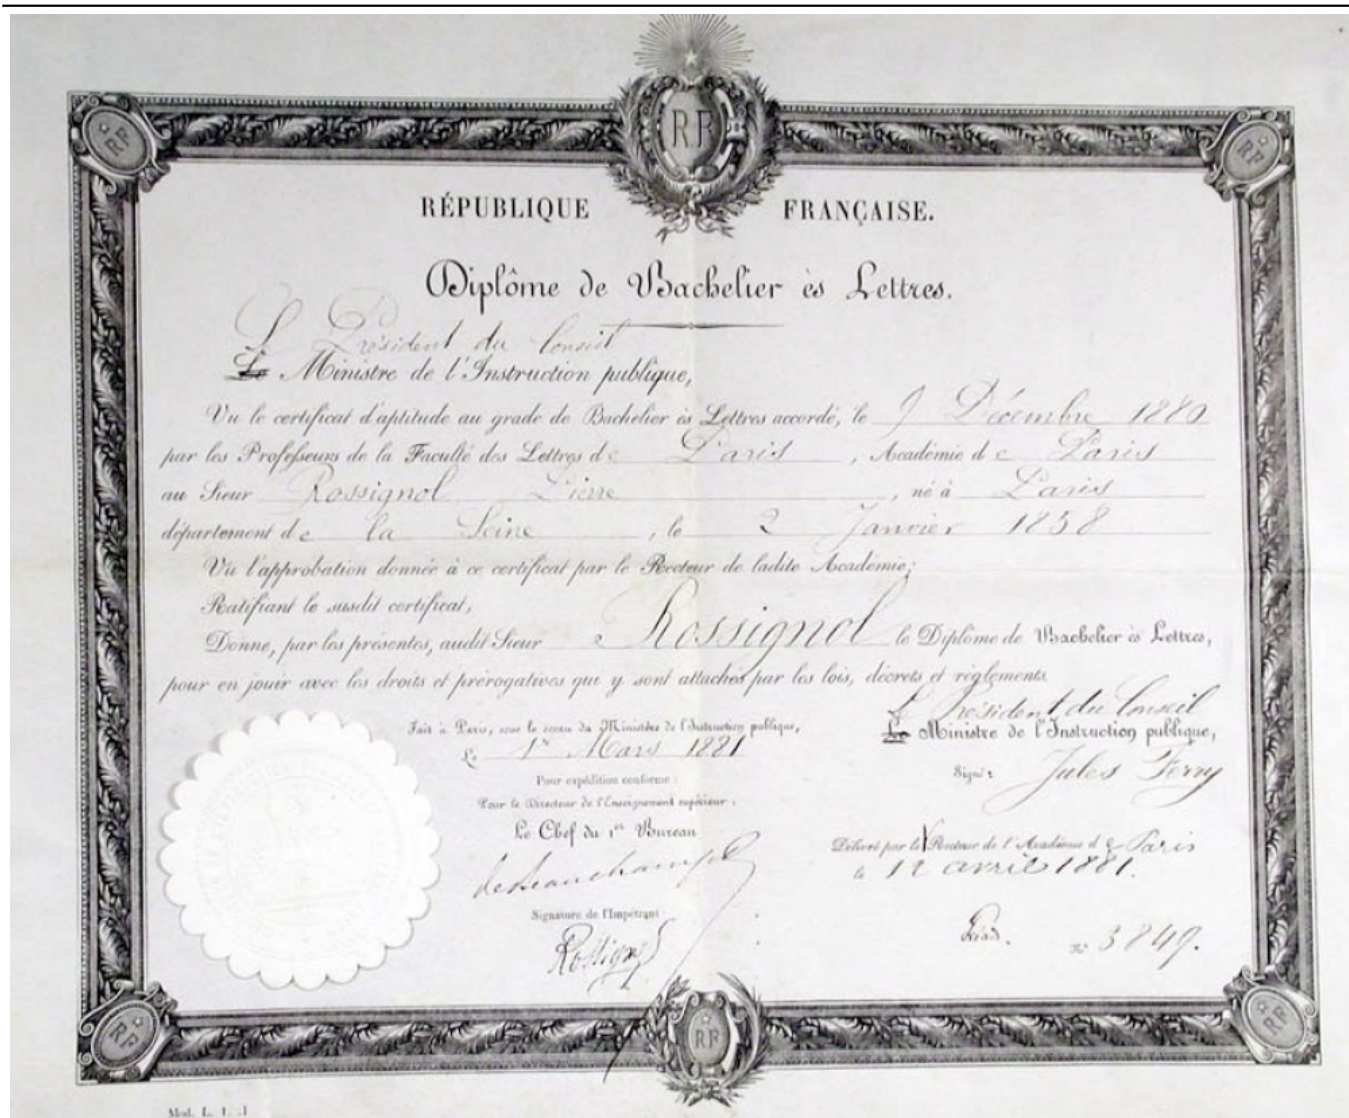 RF
RF
RF
RÉPUBLIQUE FRANÇAISE.
Diplôme de Bachelier ès Lettres.
L Président du Conseil
Le Ministre de l'Instruction publique,
Vu le certificat d'aptitude au grade de Bachelier ès Lettres accordé, le 9 Décembre 1880
par les Professeurs de la Faculté des Lettres de Paris, Académie de Paris
au Sieur Rossignol Pierre, né à Paris
département de la Seine, le 2 Janvier 1858
Vu l'approbation donnée à ce certificat par le Recteur de ladite Académie;
Ratifiant le susdit certificat,
Donne, par les présentes, audit Sieur Rossignol le Diplôme de Bachelier ès Lettres,
pour en jouir avec les droits et prérogatives qui y sont attachés par les lois, décrets et règlements.
Fait à Paris, sous le sceau du Ministère de l'Instruction publique,
Le 1er Mars 1881
Pour expédition conforme:
Pour le Directeur de l'Enseignement supérieur:
Le Chef du 1er Bureau
de Beauchamp
Signature de l'Impétrant
Rossignol
L Président du Conseil
Le Ministre de l'Instruction publique,
Signé: Jules Ferry
Délivré par le Recteur de l'Académie de Paris
le 12 avril 1881.
No 3849.
RF
RF
RF
Mod. L. 1.